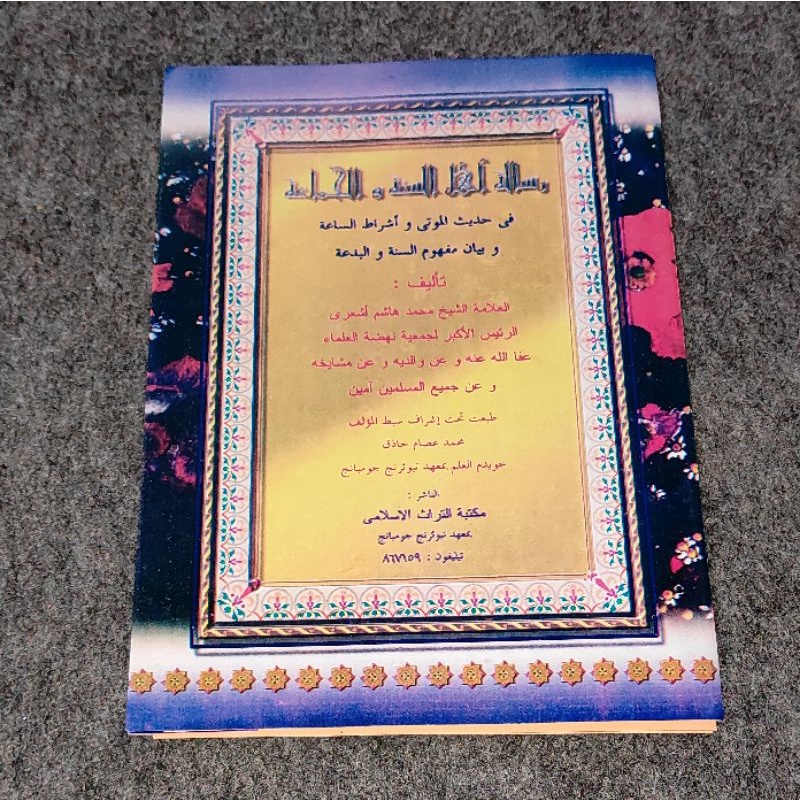 رسالة أهل السنة و الجماعة
فى حديث الموتى و أشراط الساعة
و بيان مفهوم السنة و البدعة
تأليف :
العلامة الشيخ محمد هاشم أشعرى
الرئيس الأكبر لجمعية نهضة العلماء
عفا الله عنه و عن والديه و عن مشايخه
و عن جميع المسلمين آمين
طبعت تحت إشراف سبط المؤلف
محمد عصام حاذق
خويدم العلم بمعهد تبوئرنج جومبانج
الناشر :
مكتبة التراث الاسلامى
بمعهد تبوئرنج جومبانج
تيليفون : ٨٦٧٩٥٩